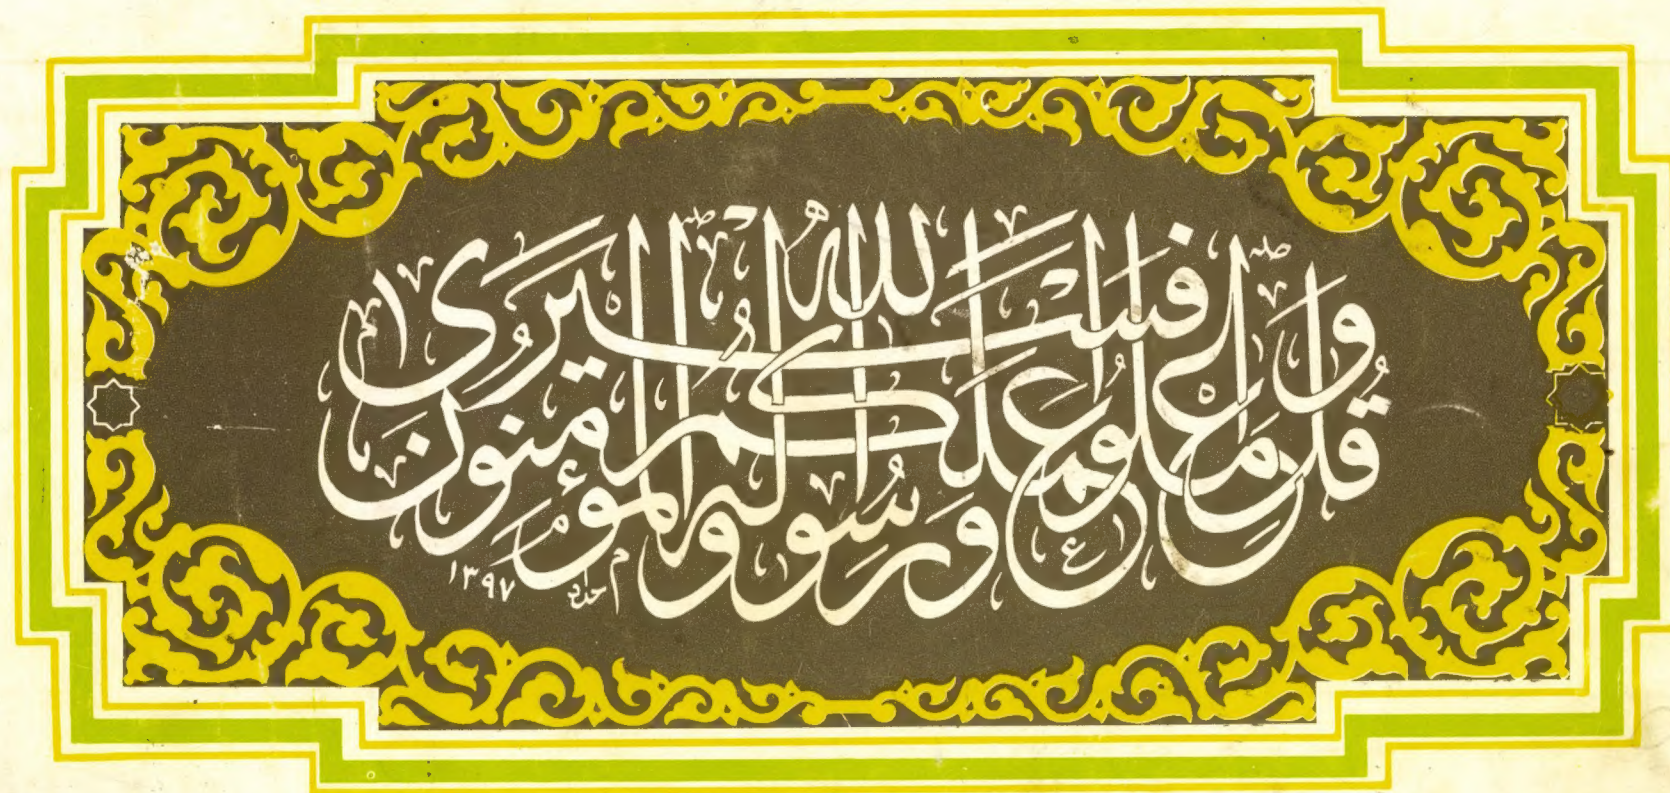 وَقُلِ اعْمَلُوا فَسَيَرَى اللهُ عَمَلَكُمْ وَرَسُولُهُ وَالْمُؤْمِنُونَ
١٣٩٧